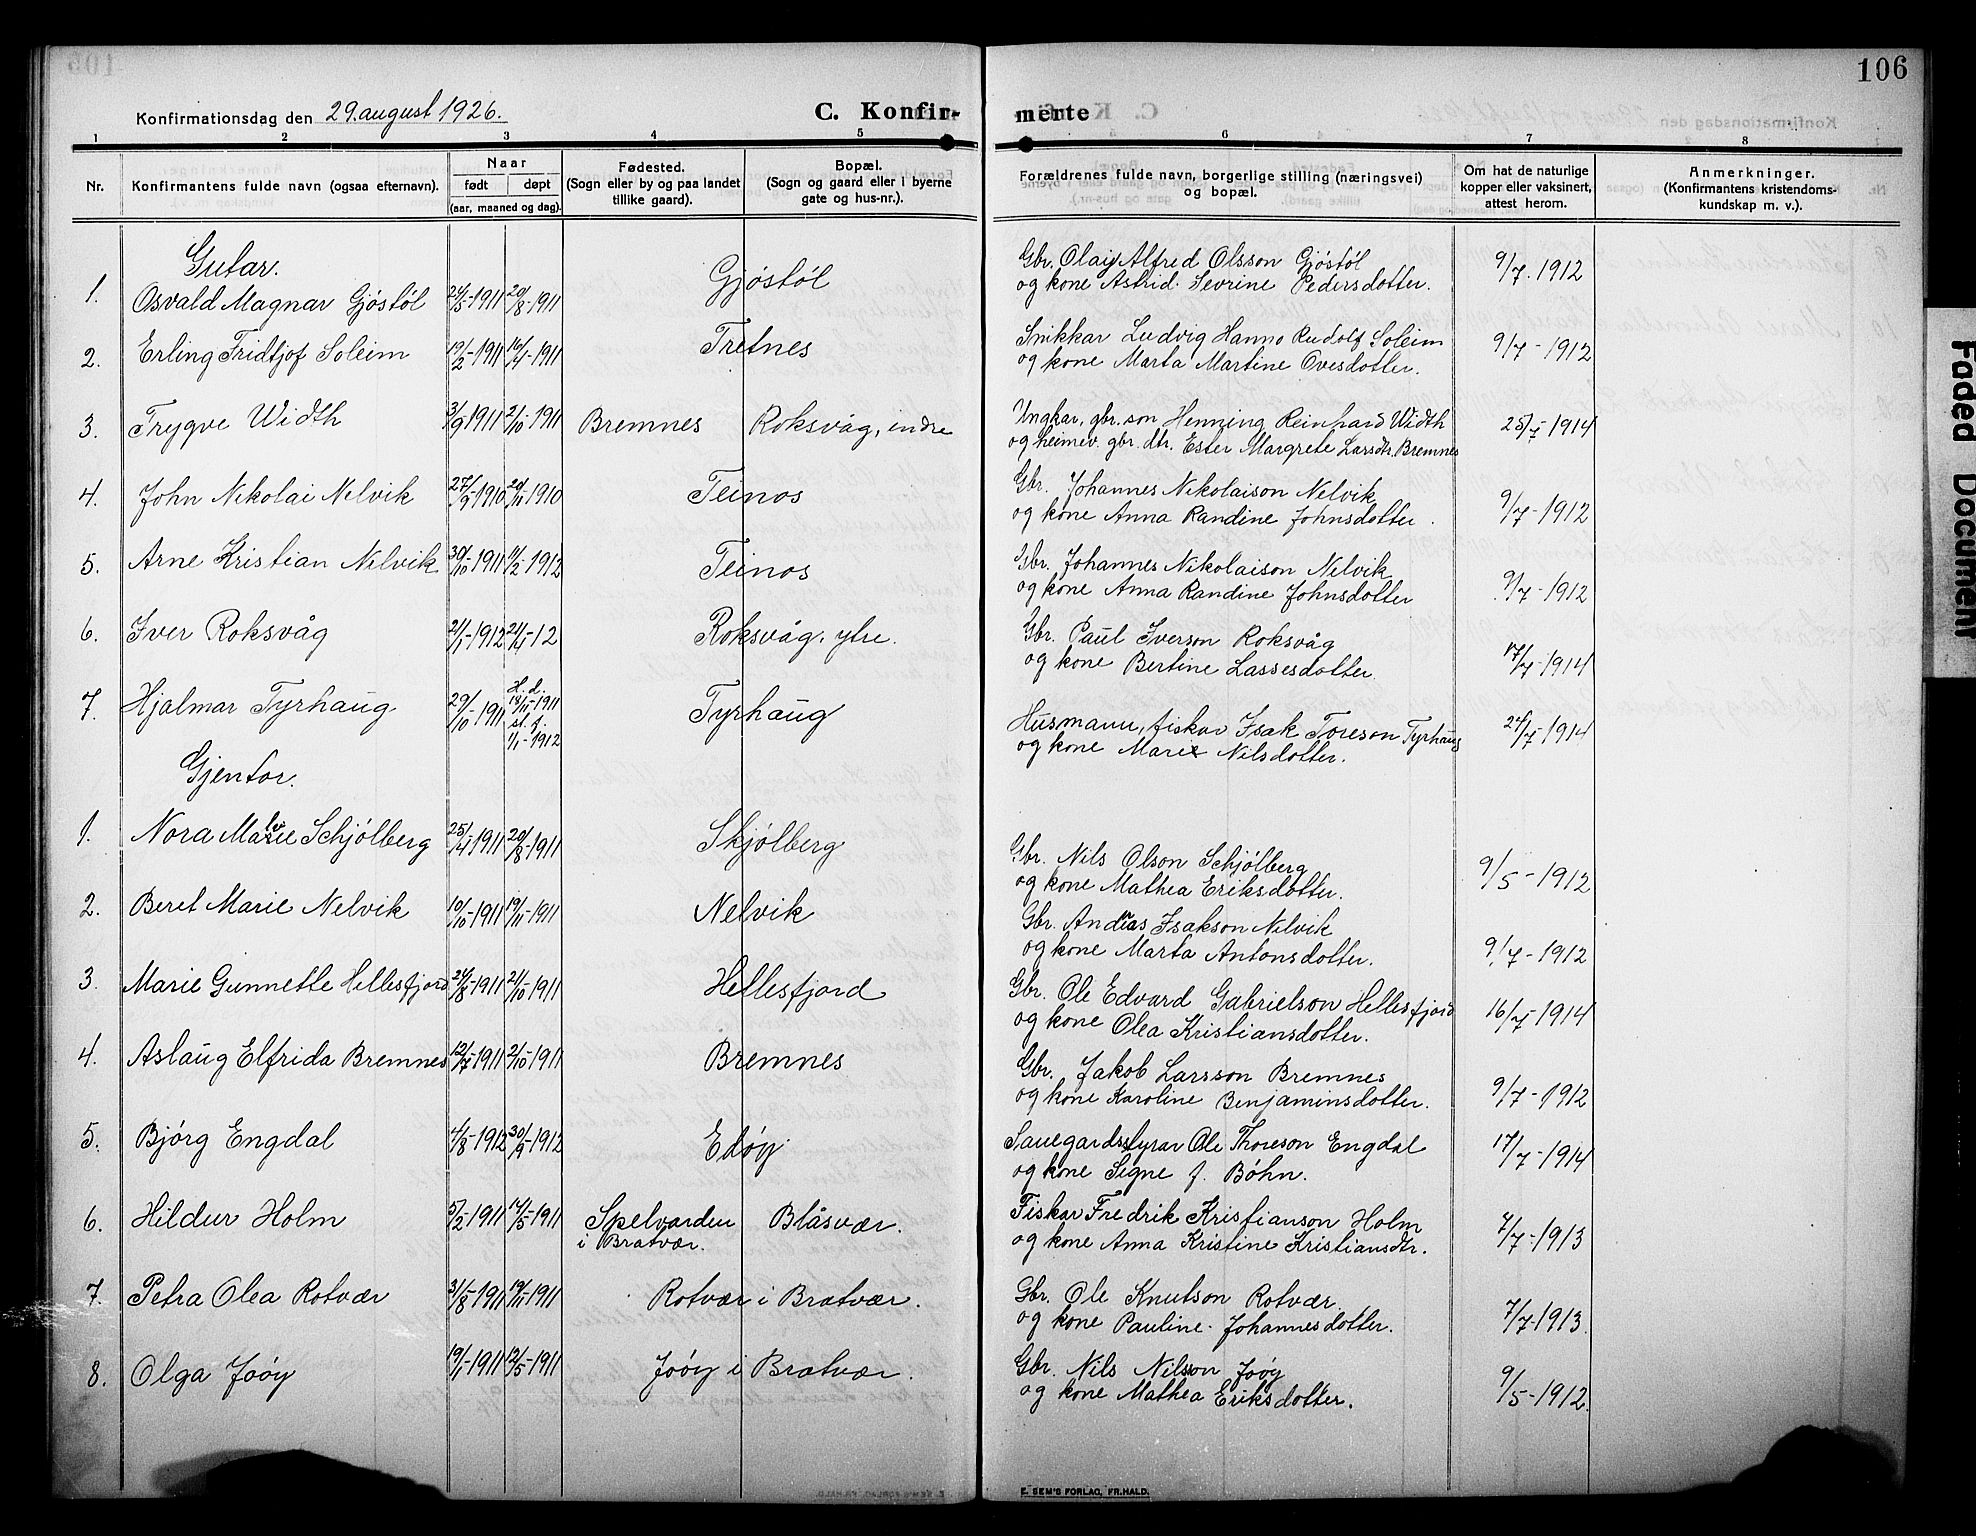 106
Konfirmationsdag den 29. august 1926.
C. Konfirmerte
1 2 3 4 5 6 7 8
Nr. Konfirmantens fulde navn (ogsaa efternavn). Naar født døpt (aar, maaned og dag). Fødested. (Sogn eller by og paa landet tillike gaard). Bopæl. (Sogn og gaard eller i byerne gate og hus-nr.). Forældrenes fulde navn, borgerlige stilling (næringsvei) og bopæl. Om hat de naturlige kopper eller vaksinert, attest herom. Anmerkninger. (Konfirmantens kristendomskundskap m. v.).
Gutar.
1. Osvald Magnar Gjøstøl 24/5-1911 20/8-1911 Gjøstøl Gbr. Olaiy Alfred Olsson Gjøstøl 9/7. 1912
og kone Astrid Sevrine Pedersdotter.
2. Erling Fridtjof Soleim 19/2-1911 16/4-1911 Tretnes Snikkar Ludvig Hanno Rudolf Soleim 9/7-1912
og kone Marta Martine Ovesdotter.
3. Trygve Width 3/9 1911 2/10-1911 Bremnes Roksvåg, indre Ungkar, gbr. son Henning Reinhard Width 25/7-1914
og heimev. gbr. dtr. Ester Margrete Larsdtr. Bremnes
4. John Nikolai Nelvik 27/9-1910 20/11-1910 Teinos Gbr. Johannes Nikolaison Nelvik 9/7-1912
og kone Anna Randine Johnsdotter.
5. Arne Kristian Nelvik 30/10-1911 11/2-1912 Teinos Gbr. Johannes Nikolaison Nelvik 9/7-1912
og kone Anna Randine Johnsdotter
6. Iver Roksvåg 21/1-1912 21/4-12 Roksvåg, ytre. Gbr. Paul Iverson Roksvåg 17/7-1914
og kone Bertine Lassesdotter
7. Hjalmar Tyrhaug 29/10-1911 H. d. 13/11-1911 st. f. 1/1-1912 Tyrhaug Husmann, fiskar Isak Toreson Tyrhaug 24/7-1914
og kone Marie Nilsdotter.
Gjentor.
1. Nora Marie Schjølberg 25/4-1911 20/8-1911 Skjølberg Gbr. Nils Olson Schjølberg 9/5-1912
og kone Mathea Eriksdotter.
2. Beret Marie Nelvik 10/10-1911 19/11-1911 Nelvik Gbr. Andreas Isakson Nelvik 9/7-1912
og kone Marta Antonsdotter.
3. Marie Gunnette Hellesfjord 24/8-1911 21/10-1911 Hellesfjord Gbr. Ole Edvard Gabrielson Hellesfjord 16/7-1914
og kone Olea Kristiansdotter.
4. Aslaug Elfrida Bremnes 12/7-1911 2/10-1911 Bremnes Gbr. Jakob Larsson Bremnes 9/7-1912
og kone Karoline Benjaminsdotter.
5. Bjørg Engdal 4/8-1912 30/9-1912 Edøy Sauegardsstyrar Ole Thoreson Engdal 17/7-1914
og kone Signe f. Bøhn.
6. Hildur Holm 5/2-1911 14/5-1911 Spelvarden i Bratvær. Blåsvær. Fiskar Fredrik Kristianson Holm 7/7-1913
og kone Anna Kristine Kristiansdtr.
7. Petra Olea Rotvær 31/8-1911 19/11-1911 Rotvær i Bratvær. Gbr. Ole Knutson Rotvær 7/7-1913
og kone Pauline Johannesdotter.
8. Olga Joøy 19/1-1911 12/5-1911 Joøy i Bratvær. Gbr. Nils Nilsson Joøy 9/5-1912.
og kone Mathea Eriksdotter.
E. SEM'S FORLAG, FR.HALD.
Faded Document